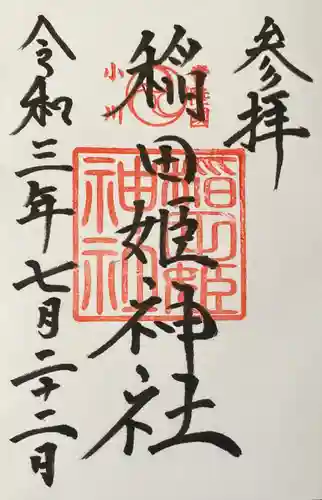 参拝
稲田姫神社
令和三年七月二十二日
稲田姫
神社